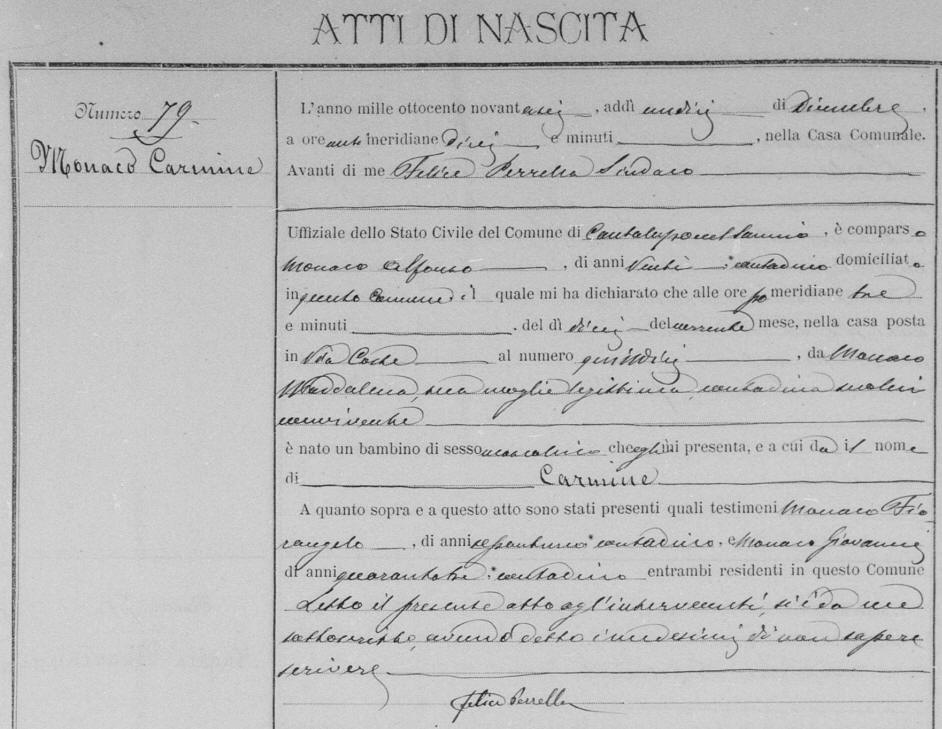 ATTI DI NASCITA
Numero 79.
Monaco Carmine
L'anno mille ottocento novantasej, addì undicj di Dicembre,
a ore antimeridiane diecj e minuti, nella Casa Comunale.
Avanti di me Felice Perrella Sindaco
Uffiziale dello Stato Civile del Comune di Cantalupo nel Sannio, è comparso
Monaco Alfonso, di anni Venti: contadino domiciliato
in questo Comune il quale mi ha dichiarato che alle ore pomeridiane tre
e minuti, del dì diecj del corrente mese, nella casa posta
in Via Coste al numero quindicj, da Monaco
Maddalena, sua moglie legittima, contadina seco lui
convivente
è nato un bambino di sesso mascolino che egli mi presenta, e a cui dà il nome
di Carmine
A quanto sopra e a questo atto sono stati presenti quali testimoni Monaco Fio
rangelo, di anni sessantuno: contadino, e Monaco Giovannj
di anni quarantatre: contadino entrambi residenti in questo Comune
Letto il presente atto agl'intervenuti, si è da me
sottoscritto, avendo detto i medesimj di non sapere
scrivere
Felice Perrella